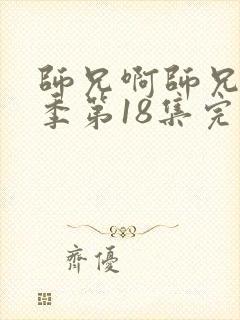 師兄啊師兄
季第18集完
齊優